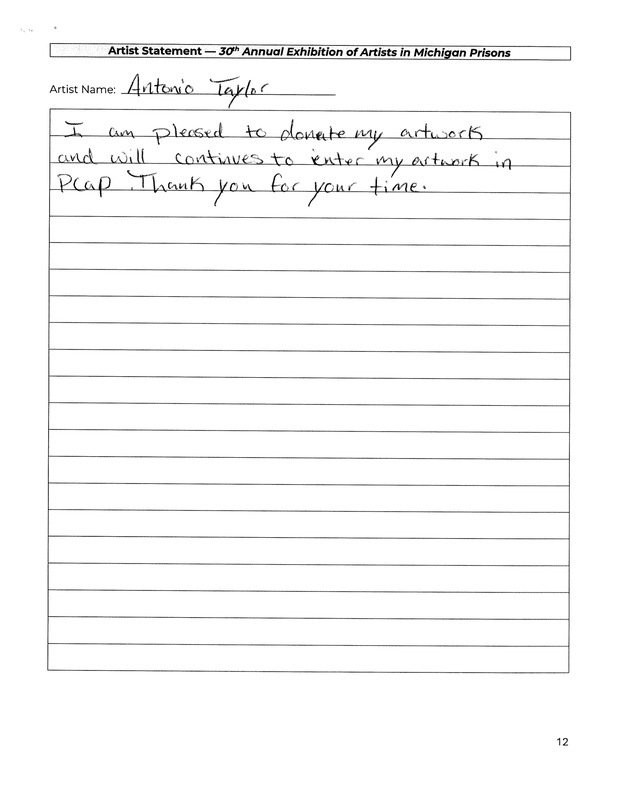 Artist Statement — 30th Annual Exhibition of Artists in Michigan Prisons
Artist Name: Antonio Taylor
I am pleased to donate my artwork
and will continues to enter my artwork in
PCap. Thank you for your time.
12